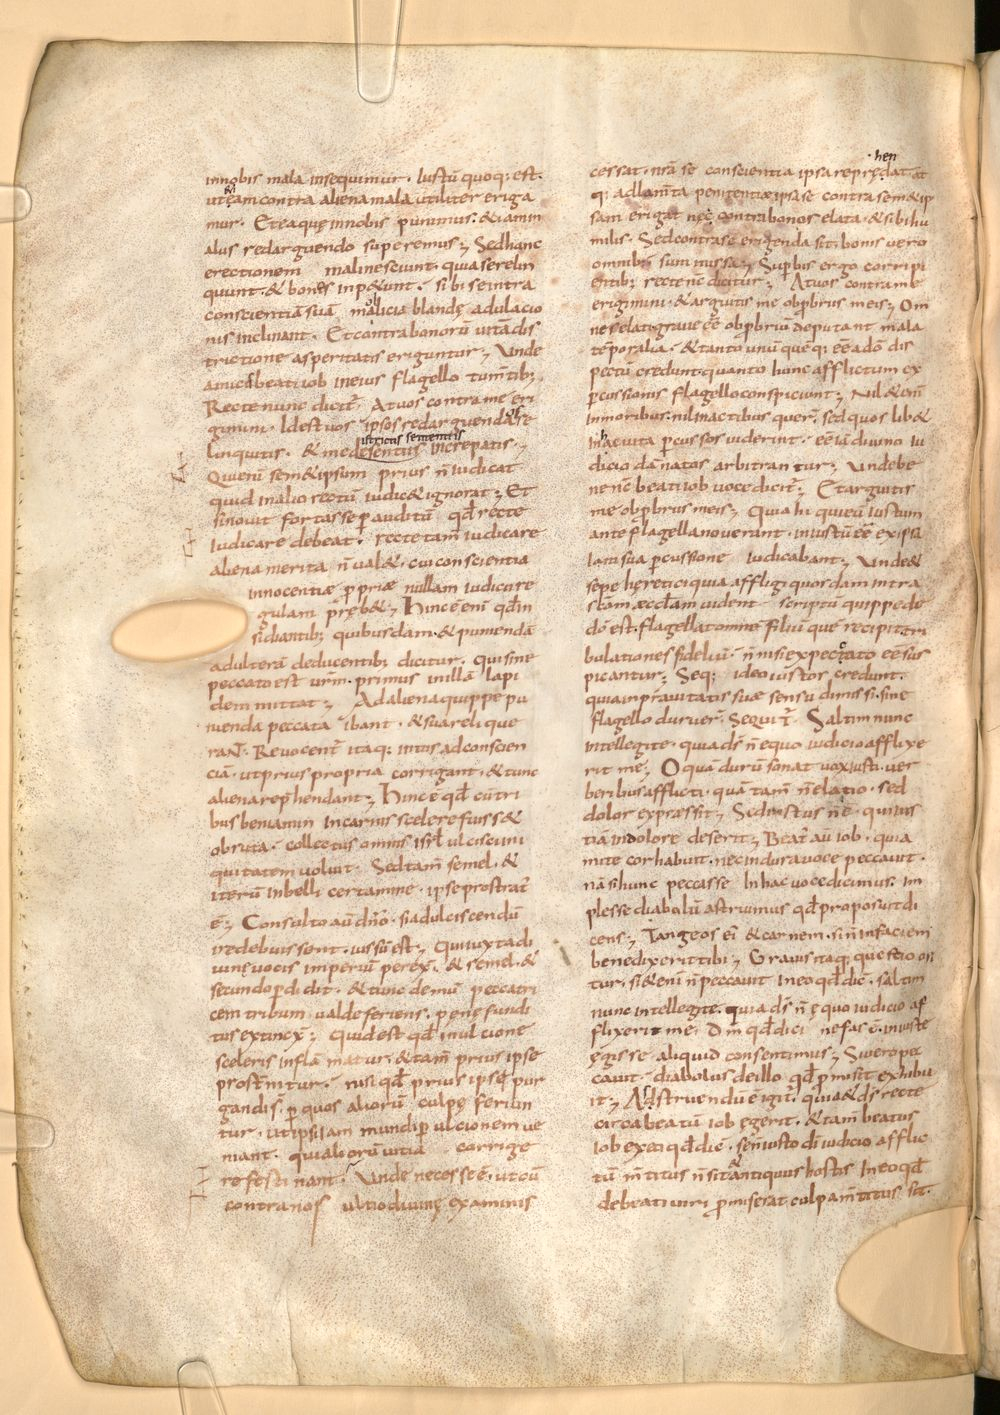 innobis mala insequimur. Iustũ quoq; est.
ut etiam contra aliena mala utiliter eriga
mur. Et ea quę innobis punimus. & iamin
aliis redarguendo superemus; Sed hanc
erectionem mali nesciunt. quia se relin
quunt. & bonos inp&unt. sibi se intra
conscientiã suã malicia blandę adulacio
nis inclinant. Et contra bonorũ uitã dis
trictione asperitatis eriguntur; Unde
amicis beati iob ineius flagello tum̃tib;
Recte nunc dicit̃. At uos contra me eri
gimini. Id est uos ipsos redarguendo se
iustrictis sententiis
linquitis. & me desentus increpatis;
Quienũ sem&ipsum prius ñ iudicat
quid inalio rectũ iudic& ignorat; Et
sinouit fortasse p̱ auditũ qđ recte
iudicare debeat. recte tam̃ iudicare
aliena merita ñ ual&. cui conscientia
innocentiæ p̱priæ nullam iudicii re
gulam pręb&; Hinc ẽ eni qđ in
sidiantib; quibusdam. & puniendã
adulterã deducentib; dicitur. Qui sine
peccato est ur̃m. primus inillã lapi
dem mittat; Ad aliena quippe pu
nienda peccata ibant. & sua reli que
rañ. Reuocent̃ itaq; intus ad conscien
ciã. ut prius propria corrigant. & tunc
aliena rep̃hendant; Hinc ẽ qđ cũ tri
bus beniamin incarnis scelere fuiss&
obruta. collectus omnis isrł ulcisci ini
quitatem uoluit. Sed tam̃ semel. &
iterũ inbelli certamine. ipse prostrat̃
ẽ; Consulto aũ dño. si adulciscendũ
ire debuissent. iussũ est; Qui iuxta di
uinę uocis imperiũ perex̃. & semel. &
secundo p̱didit. & tunc demũ peccatri
cem tribum. ualde feriens. penę fundi
tus extinx̃; Quid est qđ inulcione
sceleris inflãmatur. & tam̃ prius ipse
prost̃nitur. nisi qđ prius ipsi purgandi s̃.
p̱ quos aliorũ culpę feriun
tur. ut ipsi iam mundi p̱ ulcionem ue
niant. qui aliorũ uitia corrige
re festinant. Unde necesse ẽ. ut cũ
contra nos ultio diuinę examinis
hen
cessat. nr̃a se conscientia ipsa repredat at
q; ad lam̃ta penitentiæ ipsa se contra sem&ip
sam erigat nec contra bonos elata. & sibi hu
milis. Sed contra se erigenda sit. bonis uero
omnib; summissa; Sup̱bis ergo corripi
entib; recte nc̃ dicitur; At uos contra me
erigimini. & arguitis me obp̱briis meis; Om
nes elati. graue eẽ obp̱briũ deputant mala
tẽporalia. & tanto unũ quẽq; eẽ a dõ dis
pectũ credunt. quanto hunc afflictum ex
p̱cussionis flagello conspiciunt; Nil enĩ
inmoribus. nil inactibus quer̃. sed quos lib&
inhac uita p̱cussos uiderint. eẽ iã diuino iu
dicio dãnatos arbitrantur; Unde be
ne nc̃ beati iob uoce dicit̃; Et arguitis
me obp̱briis meis; Quia hi qui eũ iustum
ante flagella nouerant. iniustũ eẽ ex ipsa
iam sua p̱cussione iudicabant; Unde &
sepe hęretici quia affligi quosdam intra
sc̃am æccłam uident scriptũ quippe de
dõ est. flagellat omnẽ filiũ quẽ recipit. tri
bulationes fideliũ. ñ nisi ex peccato eẽ sus
picantur; Seq; ideo iustos credunt.
quia in p̱rauitatis suæ sensu dimissi. sine
flagello duruer̃. Sequit̃. Saltim nunc
intellegite. quia ds̃ ñ equo iudicio afflixe
rit me; O quã durũ sonat uox iusti. uer
beribus afflicti. quã tam̃ ñ elatio. sed
dolor expressit; Sed iustus ñ ẽ. qui ius
tiã indolore deserit; Beat̃ aũ iob. quia
mite cor habuit. nec indura uoce peccauit.
nã si hunc peccasse In hac uoce dicimus. im
plesse diabolũ astruimus qđ proposuit di
cens; Tange os eĩ & carnem. si ñ infaciem
benedixerit tibi; Grauis itaq; questio ori
tur. si & enĩ ñ peccauit Ineo qđ dic̃. saltim
nunc intellegite. quia ds̃ ñ ęquo iudicio af
flixerit me. Dm̃ qđ dici nefas ẽ. iniuste
ęgisse aliquid consentimus; Si uero pec
cauit. diabolus de illo qđ p̱misit exhibu
it; Adstruendũ ẽ igit̃. quia & ds̃ recte
circa beatũ iob ęgerit. & tam̃ beatus
iob ex eo qđ dic̃. se ñ iusto dĩ iudicio afflic
tũ m̃titus ñ sit. & antiquus hostis Ineo qđ
de beati uiri p̱miserat culpa m̃titus sit.